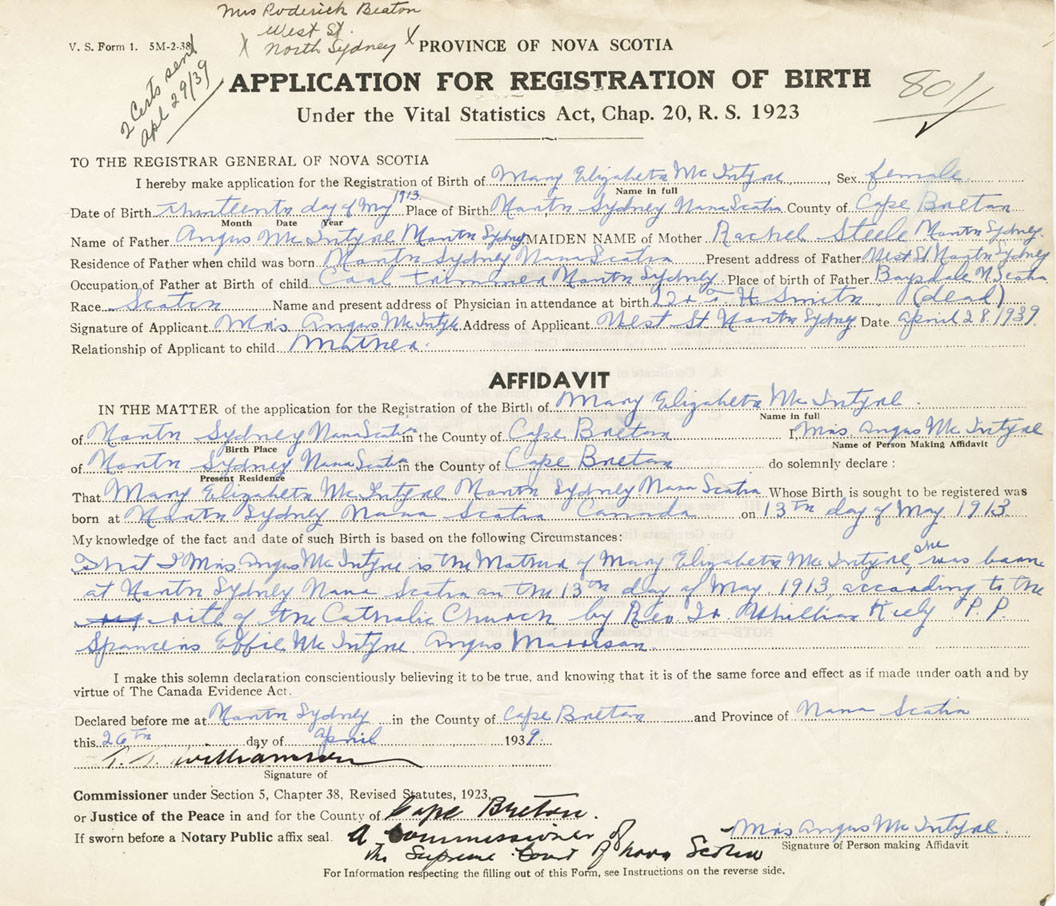 Mrs Roderick Beaton
West St.
X North Sydney X
V. S. Form 1. 5M-2-38
2 Certs sent
Apl 29/39
PROVINCE OF NOVA SCOTIA
APPLICATION FOR REGISTRATION OF BIRTH
801
Under the Vital Statistics Act, Chap. 20, R. S. 1923
TO THE REGISTRAR GENERAL OF NOVA SCOTIA
I hereby make application for the Registration of Birth of Mary Elizabeth Mc Intyre Sex female
Name in full
Date of Birth thirteenth day of May 1913 Place of Birth North Sydney Nova Scotia County of Cape Breton
Month Date Year
Name of Father Angus Mc Intyre North Sydney MAIDEN NAME of Mother Rachel Steele North Sydney.
Residence of Father when child was born North Sydney Nova Scotia Present address of Father West St North Sydney
Occupation of Father at Birth of child Coal trimmer North Sydney Place of birth of Father Baysdale N Scotia
Race Scotch Name and present address of Physician in attendance at birth H Smith (dead)
Signature of Applicant Mrs Angus Mc Intyre Address of Applicant West St North Sydney Date April 28 1939
Relationship of Applicant to child Mother.
AFFIDAVIT
IN THE MATTER of the application for the Registration of the Birth of Mary Elizabeth Mc Intyre.
Name in full
of North Sydney Nova Scotia in the County of Cape Breton I, Mrs. Angus Mc Intyre
Birth Place Name of Person Making Affidavit
of North Sydney Nova Scotia in the County of Cape Breton do solemnly declare :
Present Residence
That Mary Elizabeth Mc Intyre North Sydney Nova Scotia Whose Birth is sought to be registered was
born at North Sydney Nova Scotia Canada on 13th day of May 1913
My knowledge of the fact and date of such Birth is based on the following Circumstances:
That I Mrs Angus Mc Intyre is the Mother of Mary Elizabeth Mc Intyre, she was born
at North Sydney Nova Scotia on the 13th day of May 1913, according to the
rith of the Catholic Church by Rev Fr. William Kiely P. P.
Sponcers Effie Mc Intyre Angus Morrison.
I make this solemn declaration conscientiously believing it to be true, and knowing that it is of the same force and effect as if made under oath and by
virtue of The Canada Evidence Act.
Declared before me at North Sydney in the County of Cape Breton and Province of Nova Scotia
this 26th day of April 1939.
Williamson
Signature of
Commissioner under Section 5, Chapter 38, Revised Statutes, 1923,
or Justice of the Peace in and for the County of Cape Breton.
If sworn before a Notary Public affix seal. A Commissioner of
the Supreme Court of Nova Scotia
Mrs Angus Mc Intyre.
Signature of Person making Affidavit
For Information respecting the filling out of this Form, see Instructions on the reverse side.